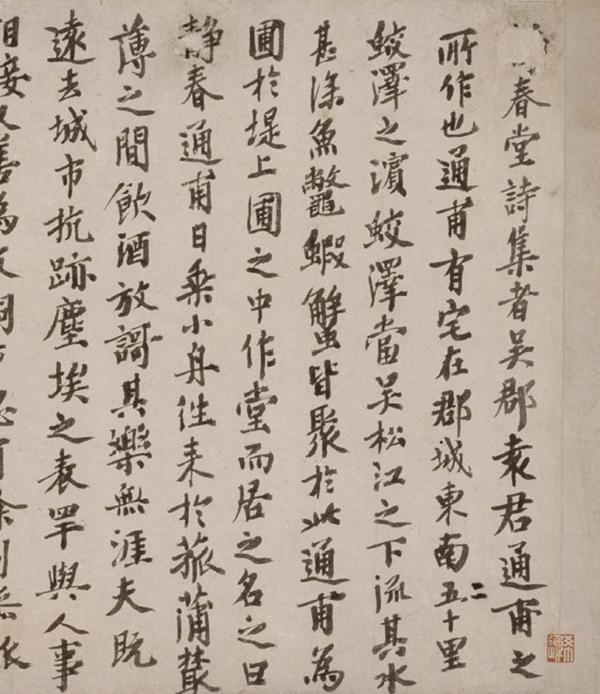 春堂詩集者吳郡袁君通甫之
所作也通甫有宅在郡城東南五二十里
蛟澤之濱蛟澤當吳松江之下流其水
甚深魚鼈蝦蟹皆聚於此通甫為
圃於堤上圃之中作堂而居之名之曰
靜春通甫日乘小舟往來於菰蒲叢
薄之間飲酒放謌其樂無涯夫既
遠去城市抗跡塵埃之表罕與人事
相接又善為文詞